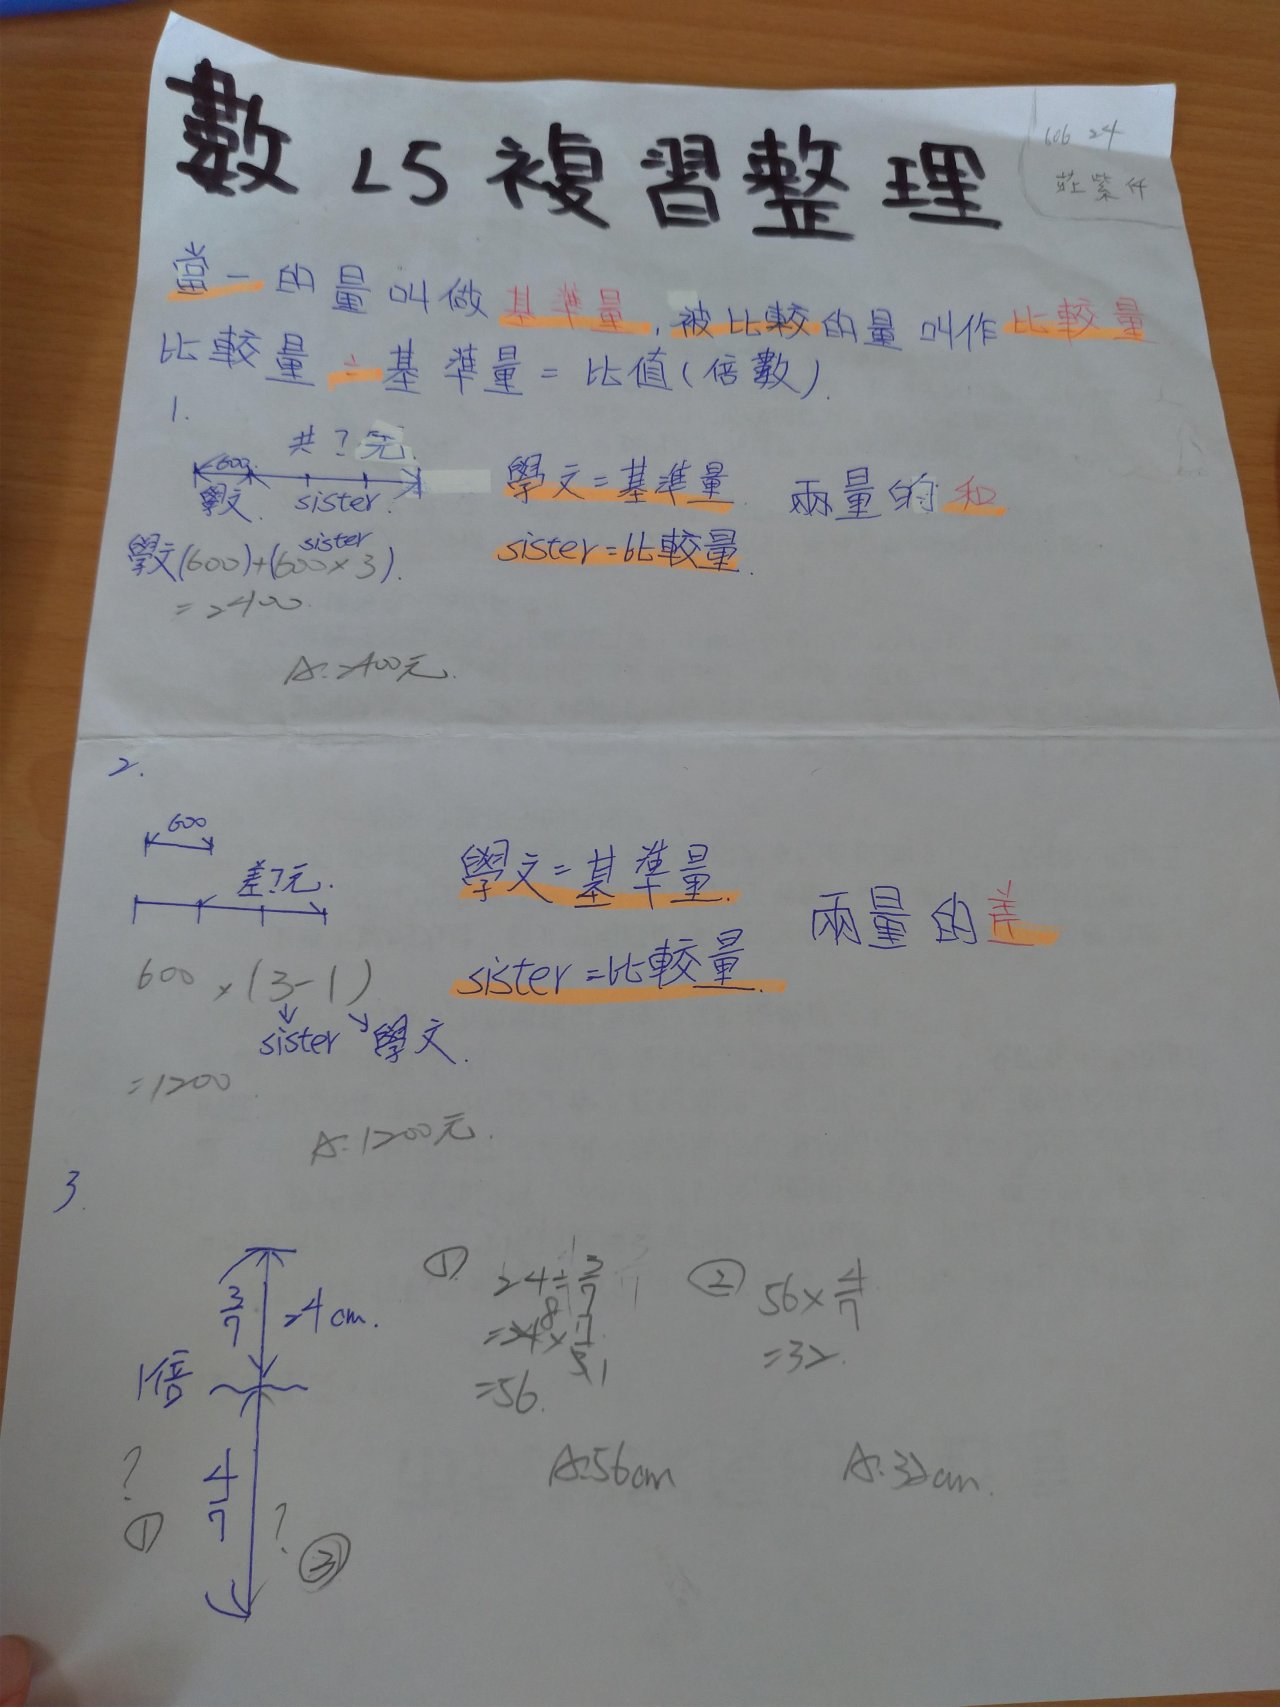 數 L5 複習整理
606 24
莊紫仟
當一的量叫做基準量,被比較的量叫作比較量
比較量÷基準量=比值(倍數)
1.
共?元
600
學文 sister
學文=基準量 兩量的和
sister=比較量
sister
學文(600)+(600×3)
=2400
A:2400元
2.
600
差?元.
學文=基準量 兩量的差
sister=比較量
600×(3-1)
sister 學文
=1200
A:1200元
3.
3/7 24cm.
1倍
? ①
4/7 ? ②
① 24÷3/7
=24×7/3
8 1
=56
A:56cm
② 56×4/7
=32
A:32cm